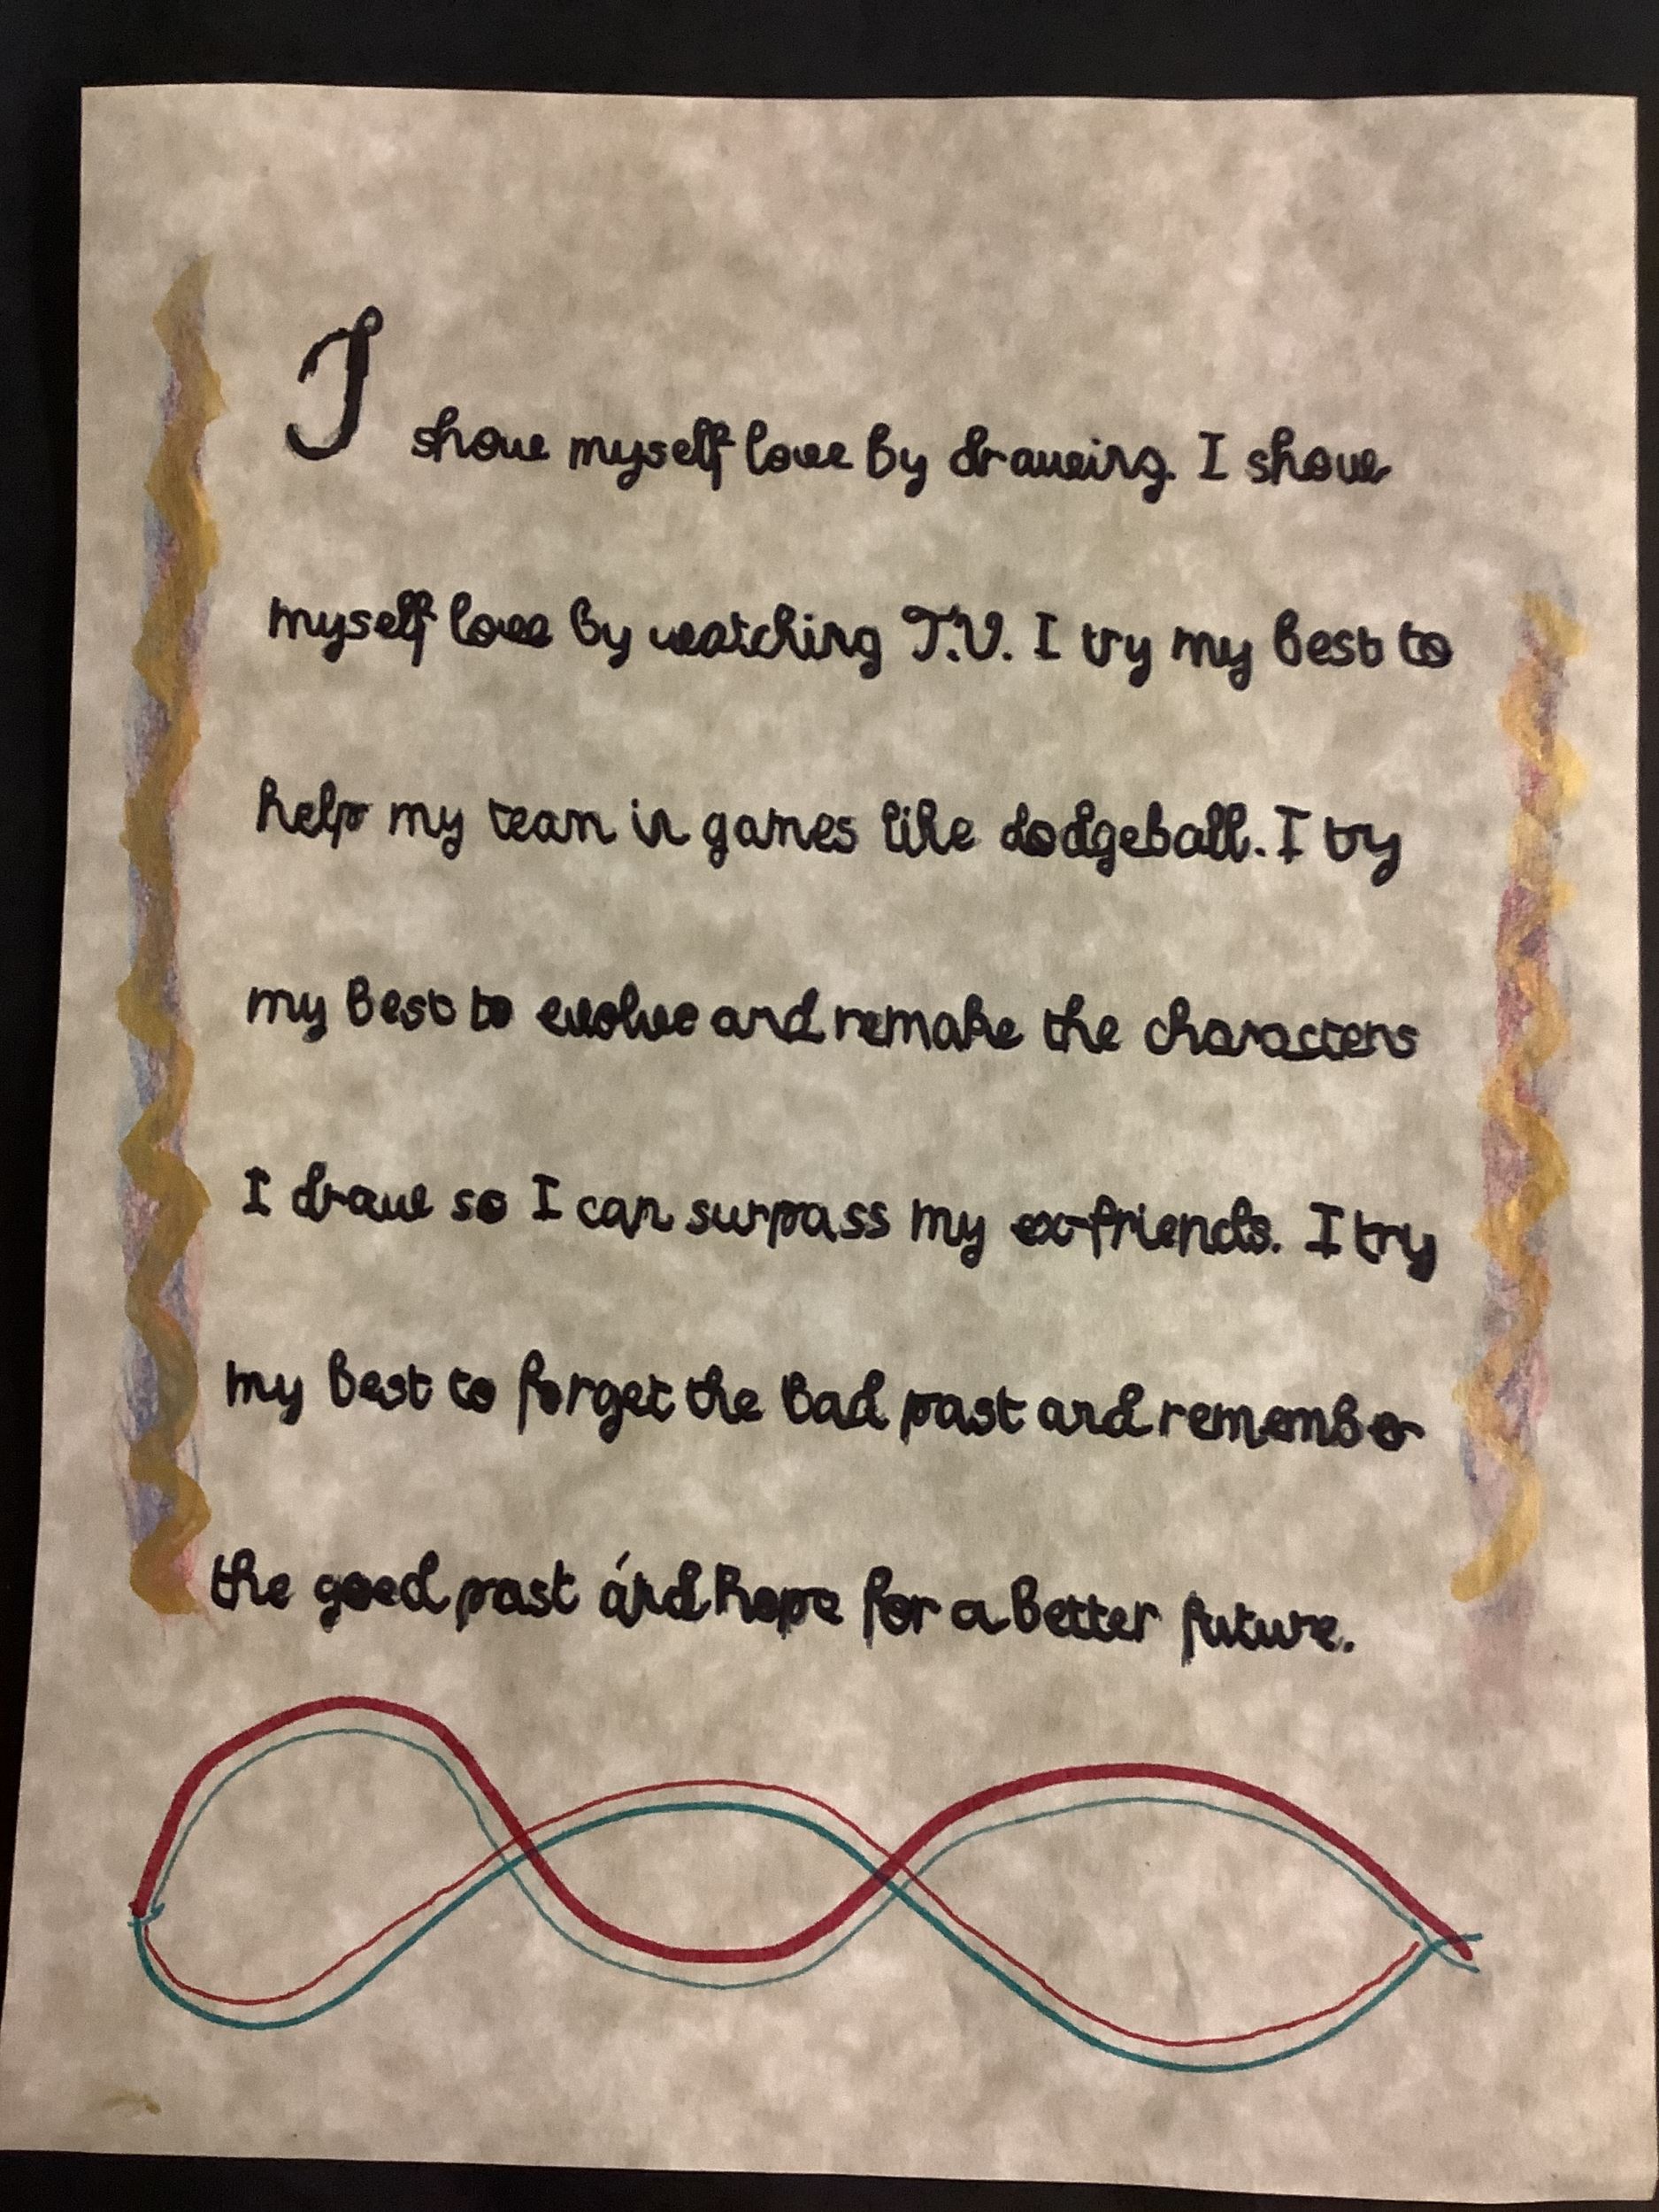 I show myself love by drawing. I show
myself love by watching T.V. I try my best to
help my team in games like dodgeball. I try
my best to evolve and remake the characters
I draw so I can surpass my ex-friends. I try
my best to forget the bad past and remember
the good past and hope for a better future.